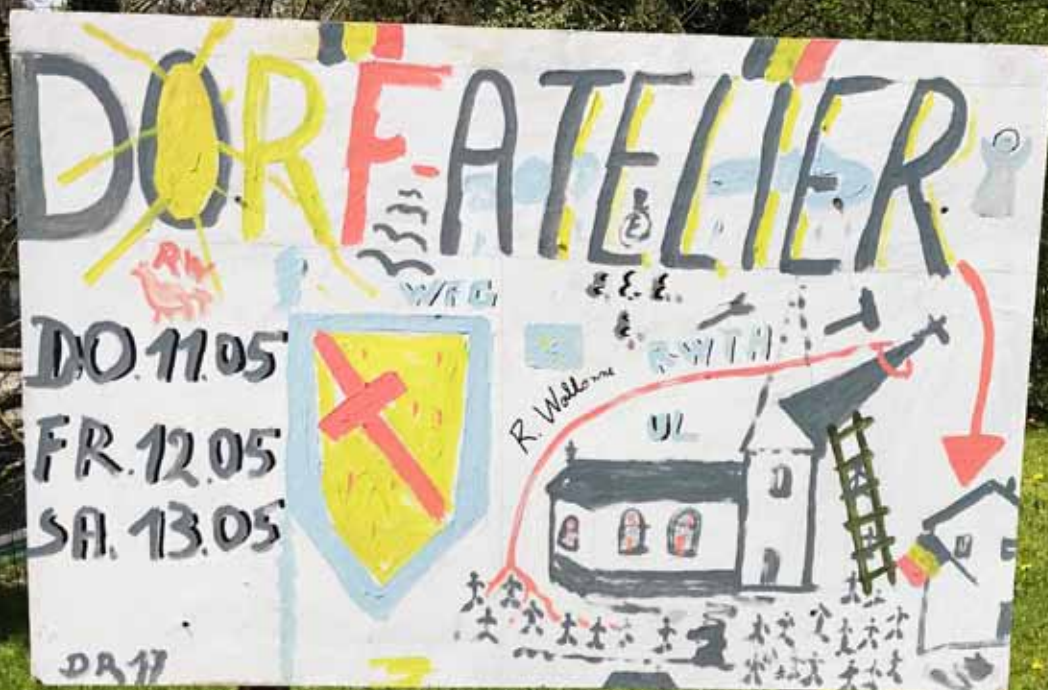 DORF-ATELIER
WFG
€.€.€.
€.
RWTH
R. Wallonne
UL
DO. 11.05
FR. 12.05
SA. 13.05